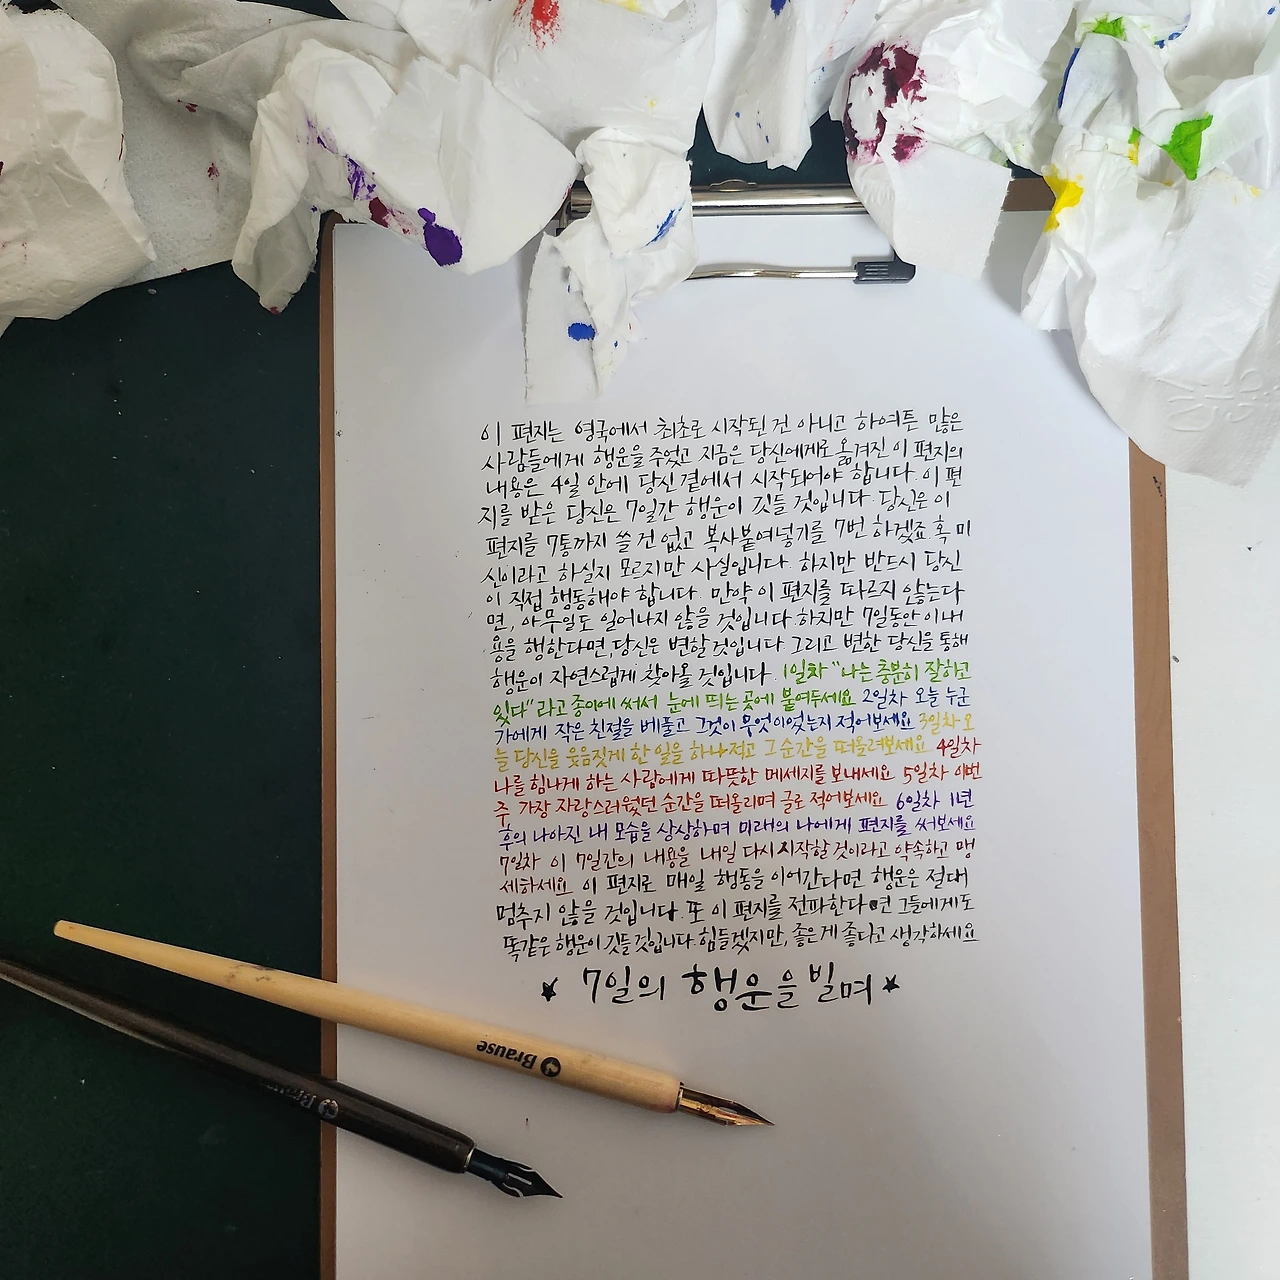 이 편지는 영국에서 최초로 시작된 건 아니고 하여튼 많은
사람들에게 행운을 주었고 지금은 당신에게로 옮겨진 이 편지의
내용은 4일 안에 당신 곁에서 시작되어야 합니다. 이 편
지를 받은 당신은 7일간 행운이 깃들 것입니다. 당신은 이
편지를 7통까지 쓸 건 없고 복사붙여넣기를 7번 하겠죠. 혹 미
신이라고 하실지 모르지만 사실입니다. 하지만 반드시 당신
이 직접 행동해야 합니다. 만약 이 편지를 따르지 않는다
면, 아무일도 일어나지 않을 것입니다. 하지만 7일동안 이 내
용을 행한다면, 당신은 변할 것입니다. 그리고 변한 당신을 통해
행운이 자연스럽게 찾아올 것입니다. 1일차 "나는 충분히 잘하고
있다"라고 종이에 써서 눈에 띄는 곳에 붙여두세요 2일차 오늘 누군
가에게 작은 친절을 베풀고 그것이 무엇이었는지 적어보세요 3일차 오
늘 당신을 웃음짓게 한 일을 하나 적고 그 순간을 떠올려보세요 4일차
나를 힘나게 하는 사람에게 따뜻한 메세지를 보내세요 5일차 이번
주 가장 자랑스러웠던 순간을 떠올리며 글로 적어보세요 6일차 1년
후의 나아진 내 모습을 상상하며 미래의 나에게 편지를 써보세요
7일차 이 7일간의 내용을 내일 다시 시작할 것이라고 약속하고 맹
세하세요 이 편지로 매일 행동을 이어간다면 행운은 절대
멈추지 않을 것입니다. 또 이 편지를 전파한다면 그들에게도
똑같은 행운이 깃들 것입니다. 힘들겠지만, 좋은게 좋다고 생각하세요
★ 7일의 행운을 빌며 ★
Brause
Brause